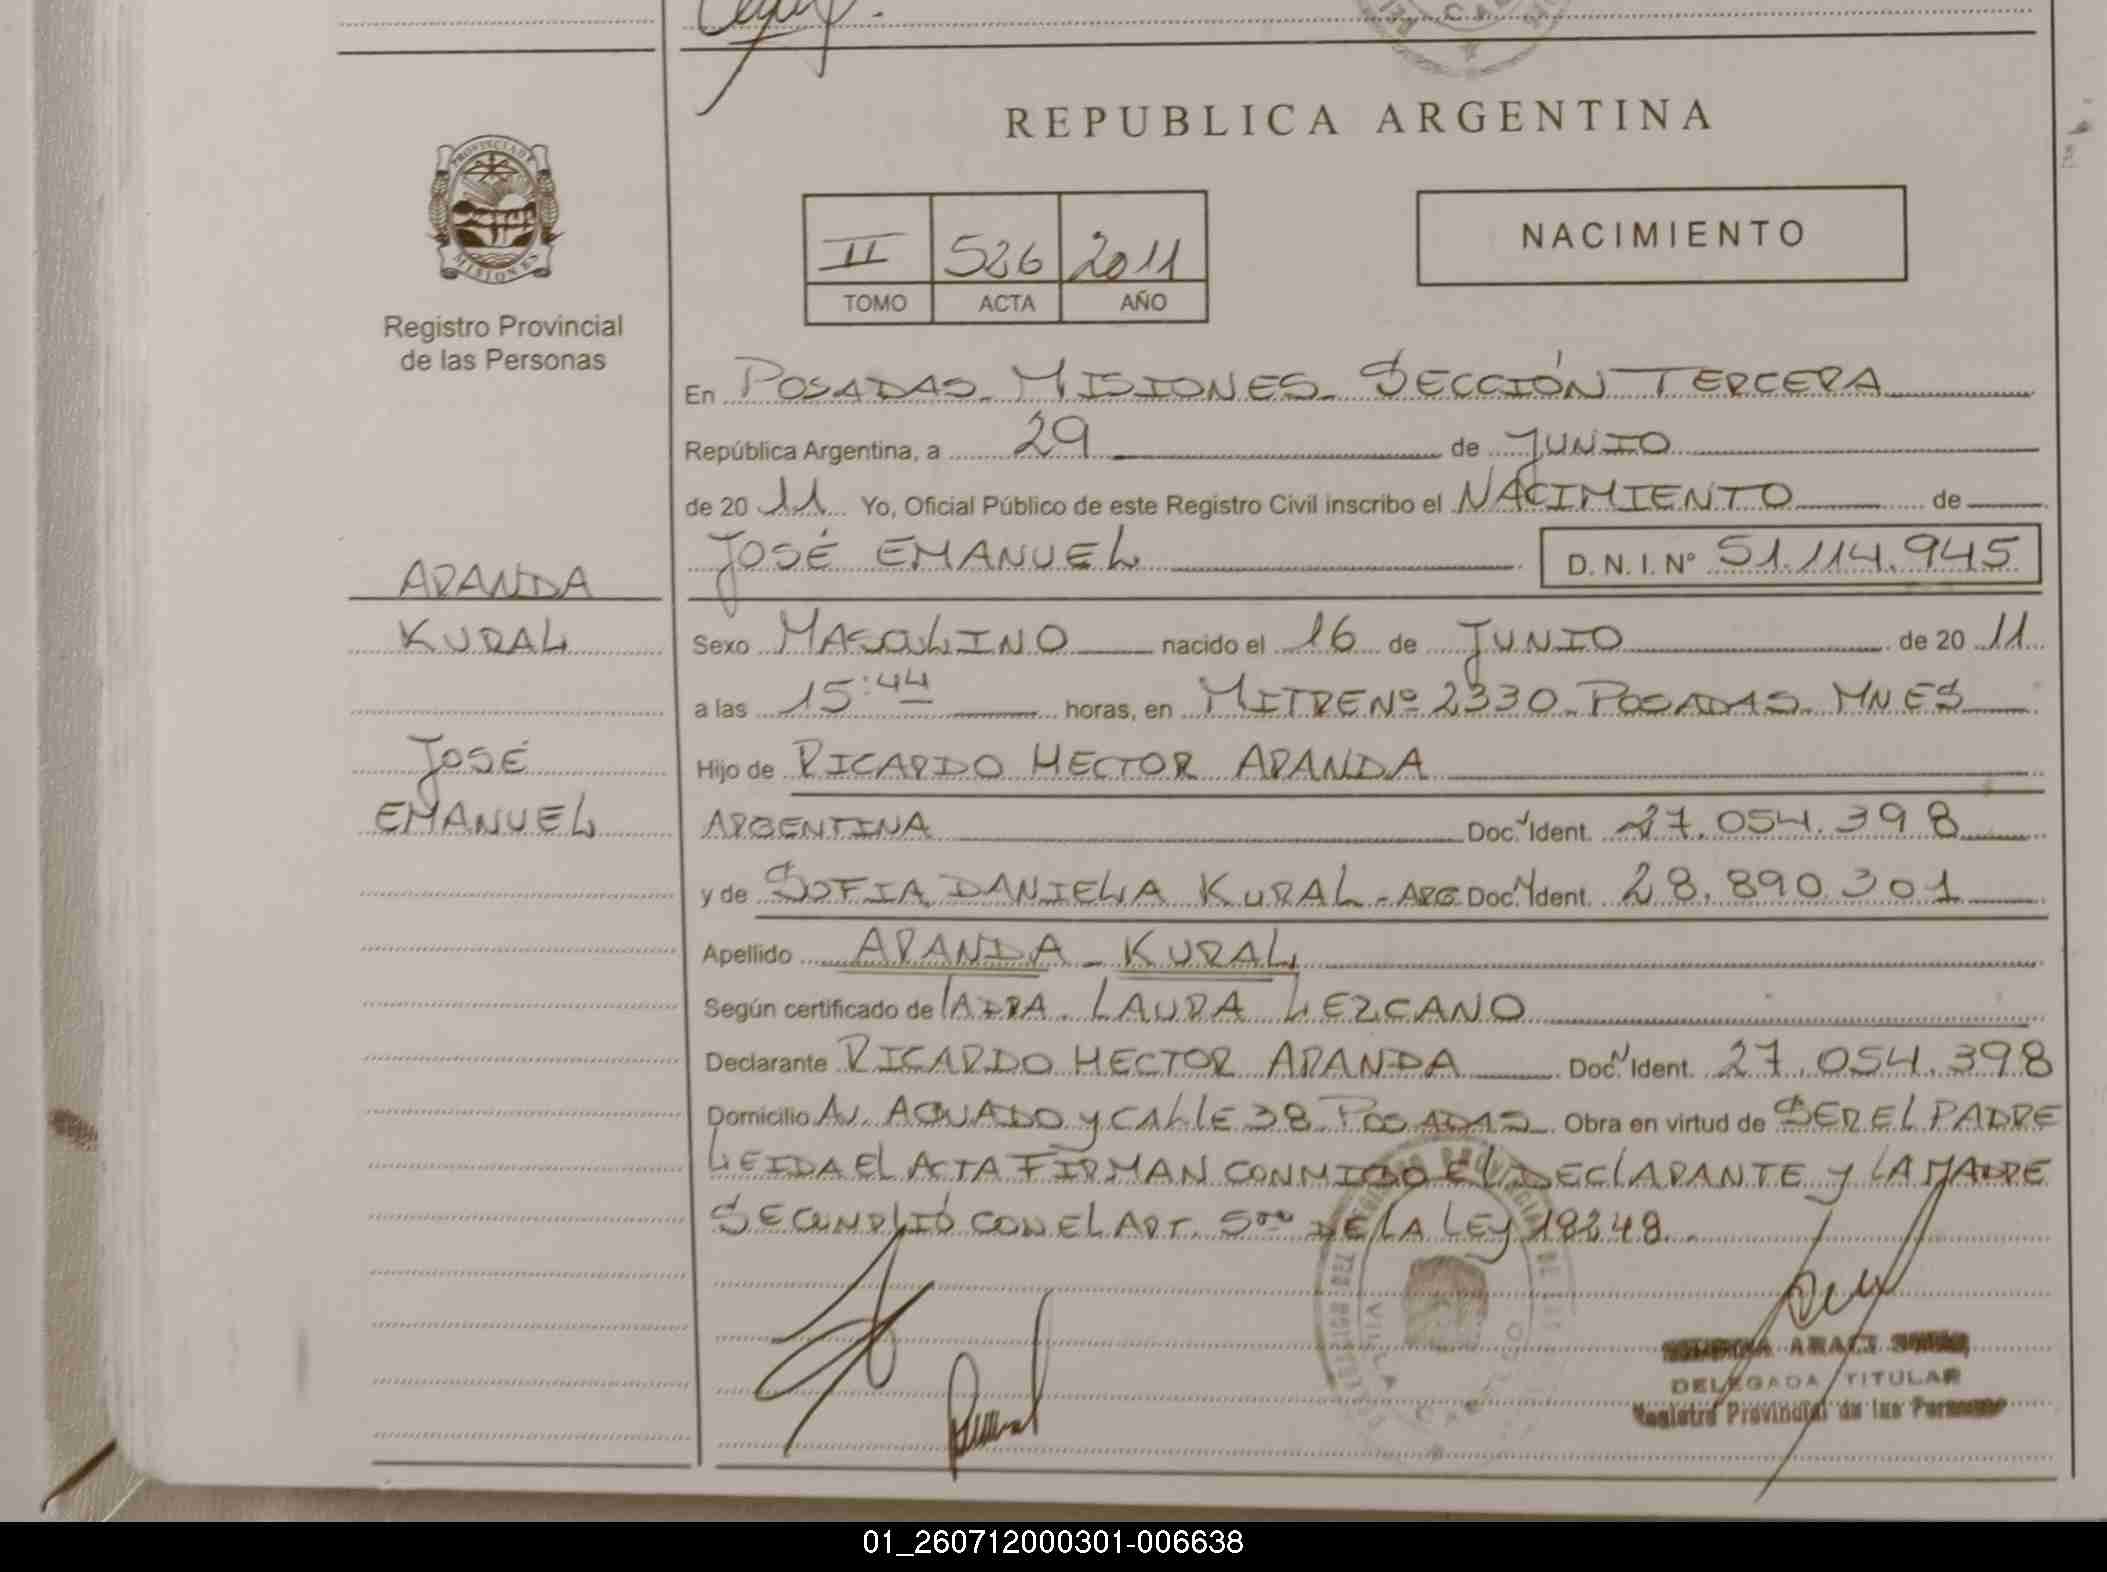 REPUBLICA ARGENTINA
PROVINCIA DE
MISIONES
Registro Provincial
de las Personas
II 526 2011
TOMO ACTA AÑO
NACIMIENTO
En POSADAS - MISIONES - SECCIÓN TERCERA
República Argentina, a 29 de JUNIO
de 2011 Yo, Oficial Público de este Registro Civil inscribo el NACIMIENTO de
JOSÉ EMANUEL D. N. I. Nº 51.114.945
ARANDA
KURAL
JOSÉ
EMANUEL
Sexo MASCULINO nacido el 16 de JUNIO de 2011
a las 15:44 horas, en MITRE Nº 2330 - POSADAS - MNES
Hijo de RICARDO HECTOR ARANDA
ARGENTINA Doc. Ident. 27.054.398
y de SOFIA DANIELA KURAL - ARG Doc. Ident. 28.890.301
Apellido ARANDA - KURAL
Según certificado de LAURA LEZCANO
Declarante RICARDO HECTOR ARANDA Doc. Ident. 27.054.398
Domicilio AV. AGUADO y CALLE 38 - POSADAS Obra en virtud de SER EL PADRE
LEIDA EL ACTA FIRMAN CONMIGO EL DECLARANTE y LA MADRE
SE CUMPLIÓ CON EL ART. 5to DE LA LEY 18248.
ARACI
DELEGADA TITULAR
Registro Provincial de las Personas
01_260712000301-006638